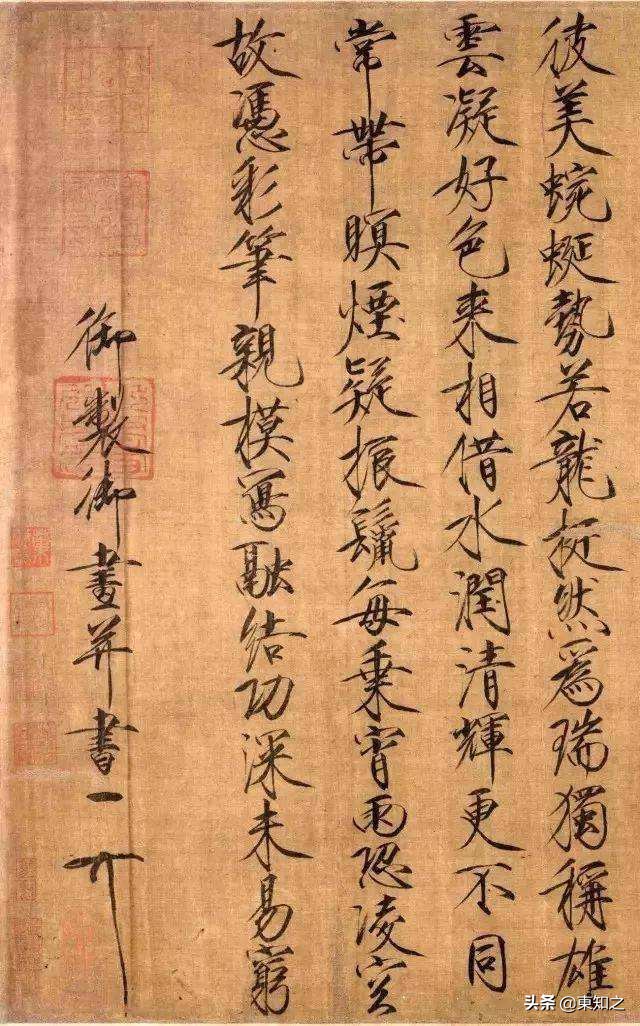 彼美蜿蜒勢若龍挺然爲瑞獨稱雄
雲凝好色來相借水潤清輝更不同
常帶暝煙疑振鬣每乗宵雨恐凌空
故憑彩筆親模寫融結功深未易窮
御製御畫并書
头条 @東知之